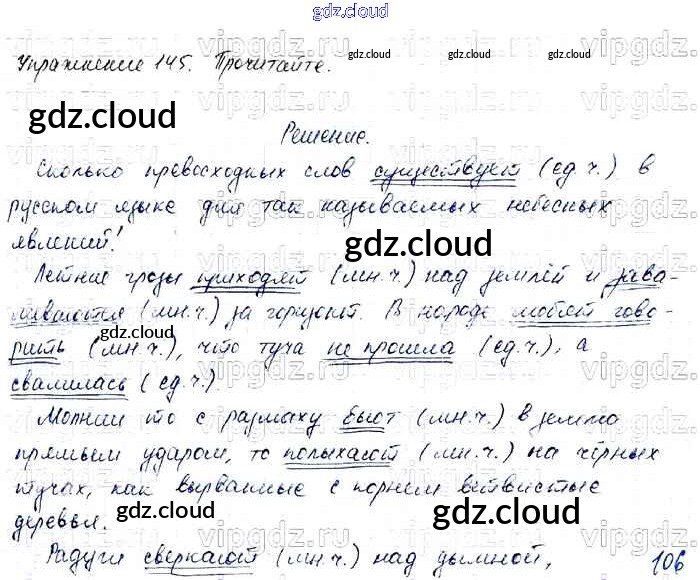 gdz.cloud
Упражнение 145. Прочитайте.
Решение.
Сколько превосходных слов существует (ед.ч.) в
русском языке для так называемых небесных
явлений!
Летние грозы приходят (мн.ч.) над землёй и зава-
ливаются (мн.ч.) за горизонт. В народе любят гово-
рить (мн.ч.), что туча не прошла (ед.ч.), а
свалилась (ед.ч.).
Молнии то с размаху бьют (мн.ч.) в землю
прямым ударом, то полыхают (мн.ч.) на чёрных
тучах, как вырванные с корнем ветвистые
деревья.
Радуги сверкают (мн.ч.) над дымной,
106